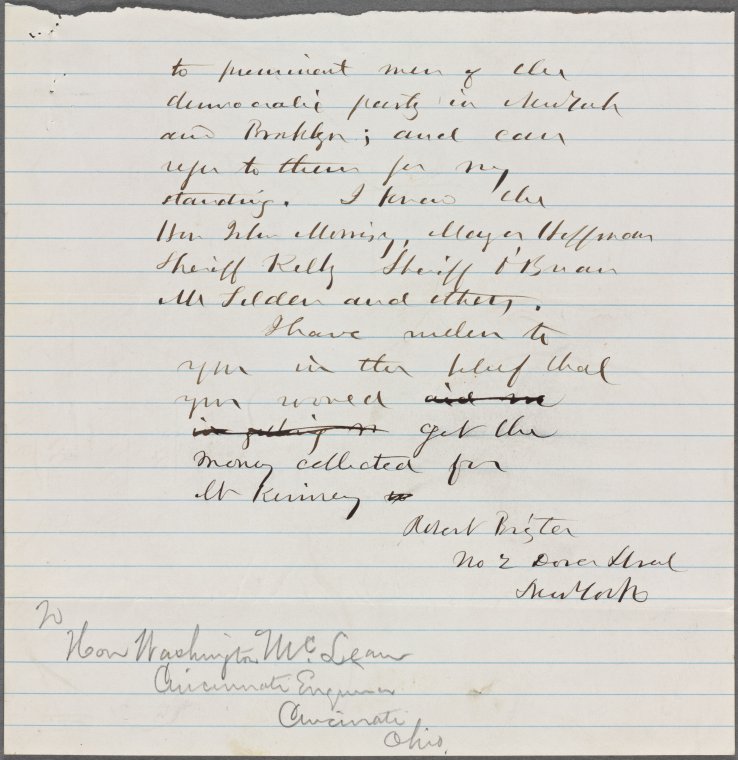 to prominent men of the
democratic party in New York
and Brooklyn; and can
refer to them for my
standing. I know the
Hon John Morrissy, Mayor Hoffman
Sheriff Kelly Sheriff O'Brian
Mr Tilden and others.
I have written to
you in the belief that
you would aid me
in getting get the
money collected for
Mr Kinney
Robert
No 2 Dover Street
New York
To
Hon Washington McLean
Cincinnati Enquirer
Cincinnati
Ohio.